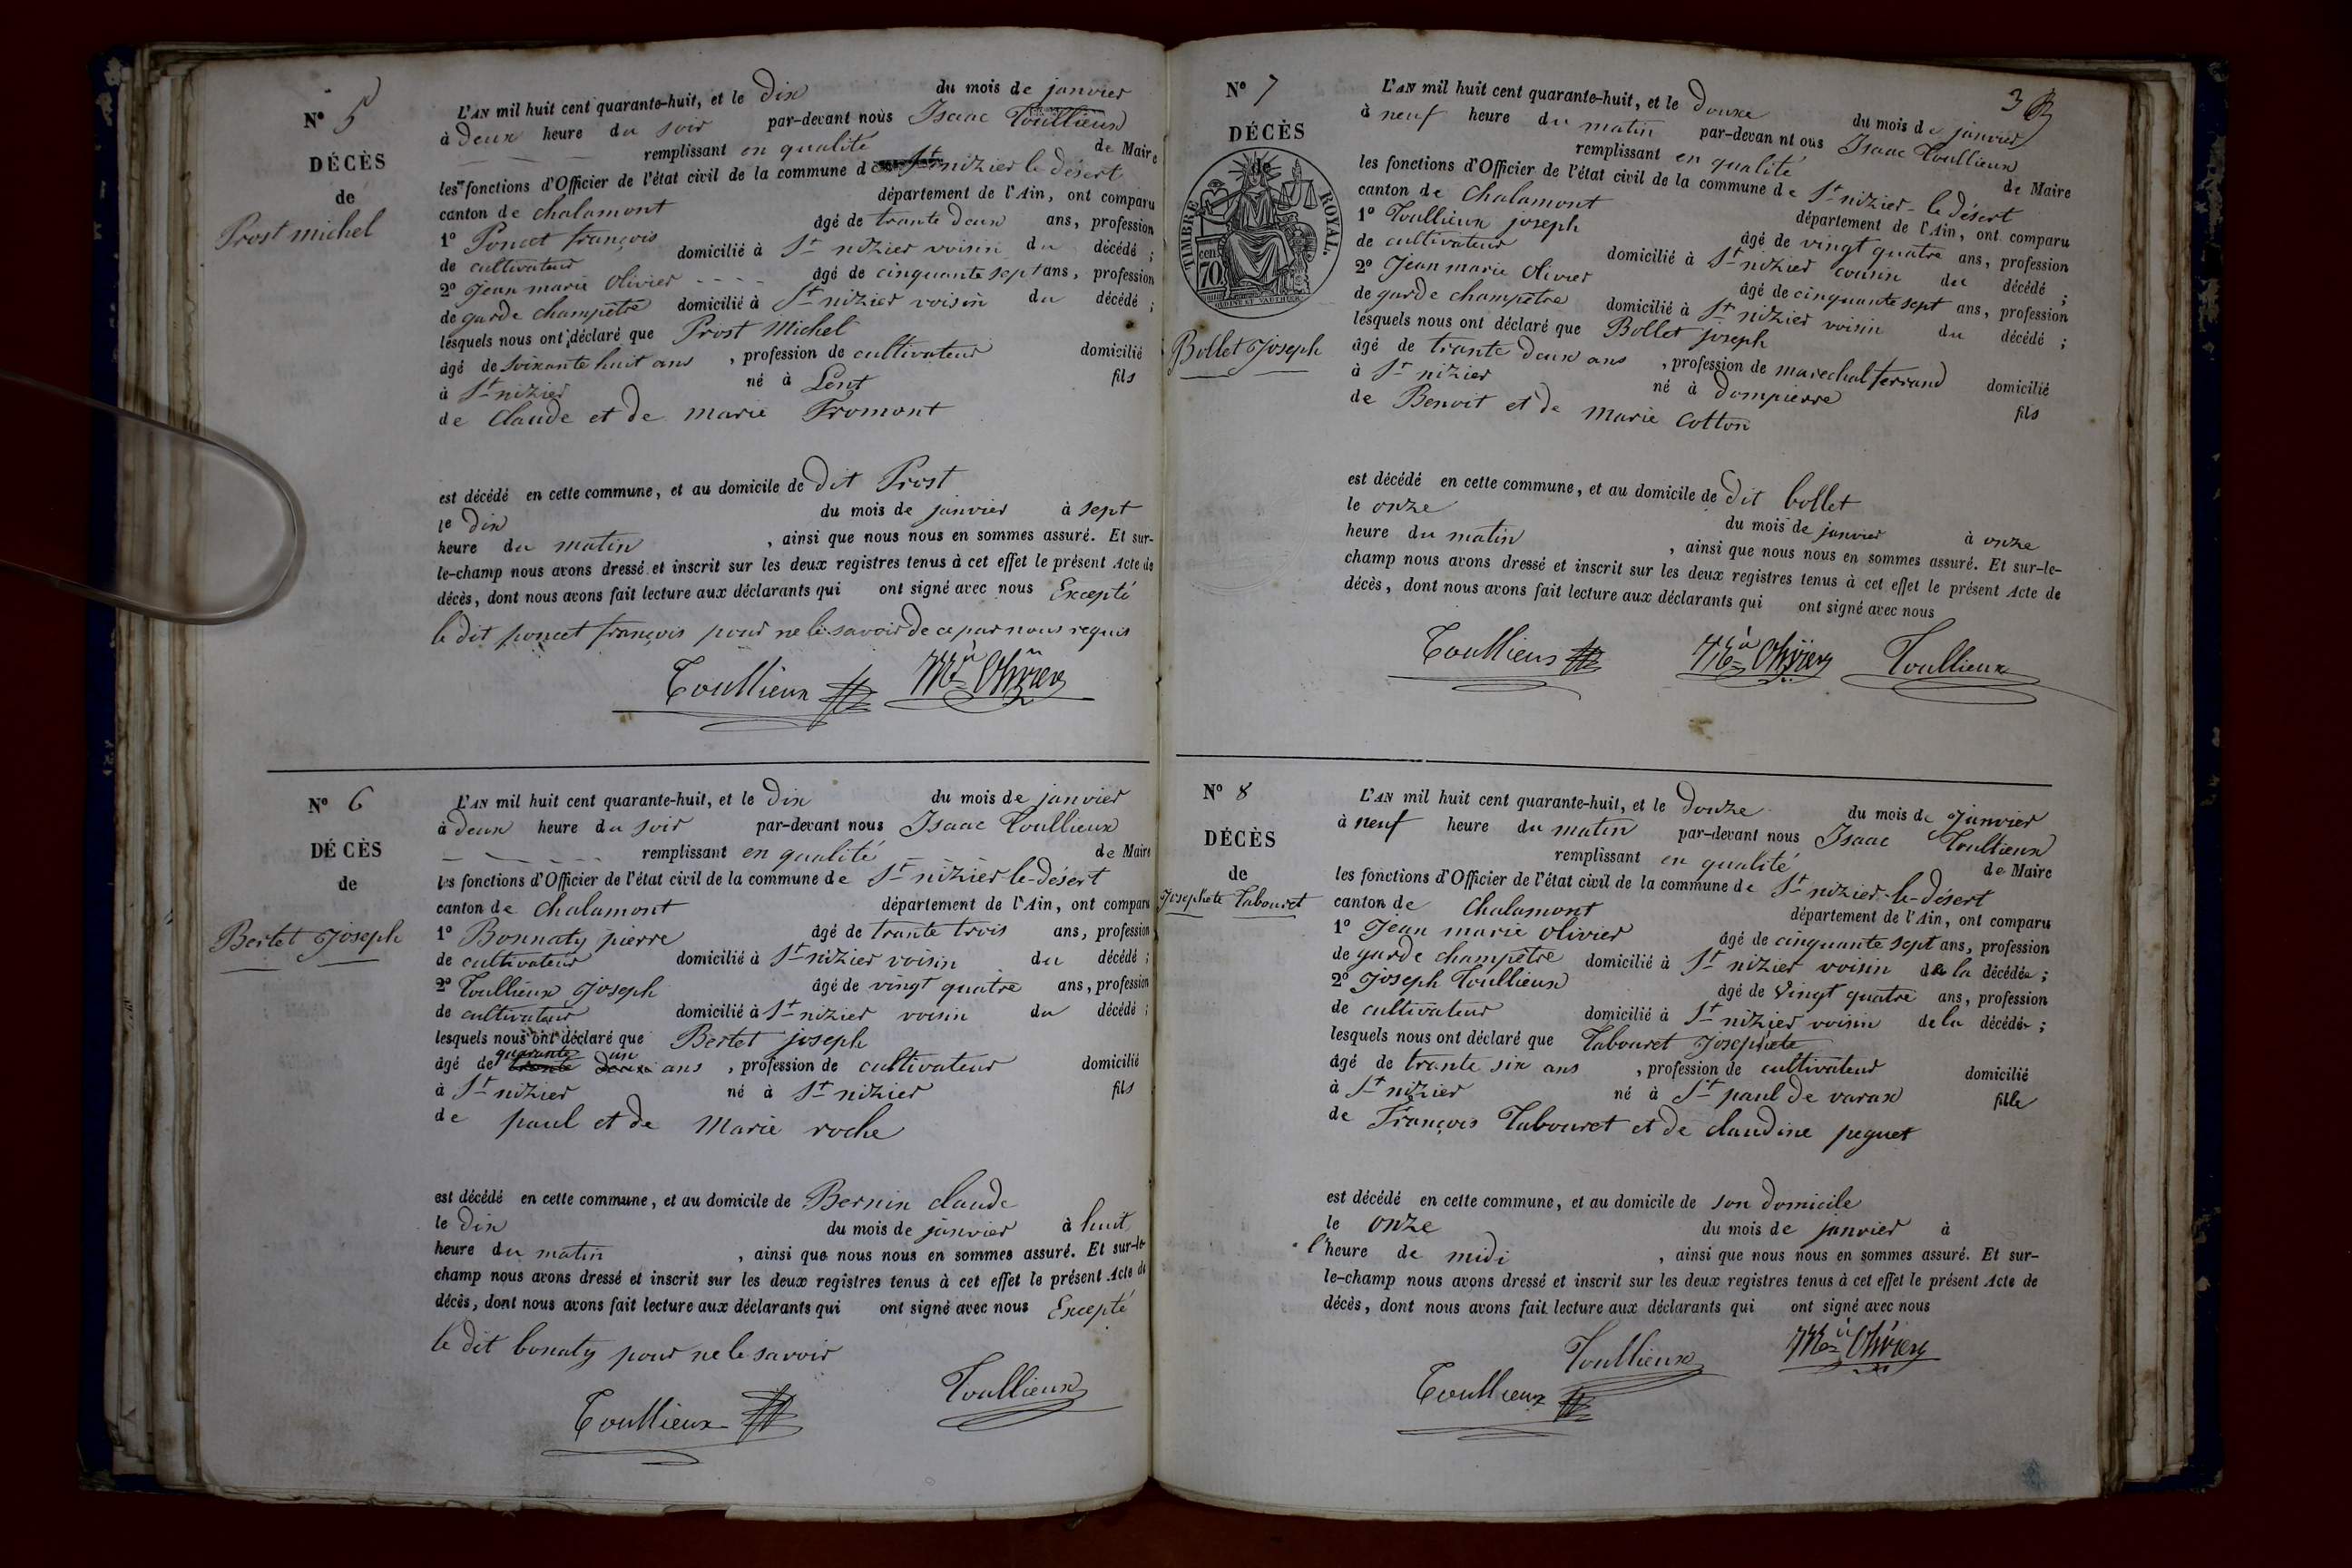 N° 5
DÉCÈS
de
Prost michel
L'AN mil huit cent quarante-huit, et le dix du mois de janvier
à deux heure du soir par-devant nous Isaac Toullieux
remplissant en qualité de Maire
les fonctions d'Officier de l'état civil de la commune de St nizier le désert
canton de chalamont département de l'Ain, ont comparu
1° Poncet françois âgé de trante deux ans, profession
de cultivateur domicilié à St nizier voisin du décédé ;
2° Jean marie Olivier âgé de cinquante sept ans, profession
de garde champêtre domicilié à St nizier voisin du décédé ;
lesquels nous ont déclaré que Prost Michel
âgé de soixante huit ans , profession de cultivateur domicilié
à St nizier né à Lent fils
de Claude et de marie Fromont
est décédé en cette commune, et au domicile de dit Prost
le dix du mois de janvier à sept
heure du matin , ainsi que nous nous en sommes assuré. Et sur-
le-champ nous avons dressé et inscrit sur les deux registres tenus à cet effet le présent Acte de
décès, dont nous avons fait lecture aux déclarants qui ont signé avec nous Excepté
le dit poncet françois pour ne le savoir de ce par nous requis
Toullieux Mie Olivier
N° 6
DÉCÈS
de
Bertet Joseph
L'AN mil huit cent quarante-huit, et le dix du mois de janvier
à deux heure du soir par-devant nous Isaac Toullieux
remplissant en qualité de Maire
les fonctions d'Officier de l'état civil de la commune de St nizier le-désert
canton de chalamont département de l'Ain, ont comparu
1° Bonnaty pierre âgé de trante trois ans, profession
de cultivateur domicilié à St nizier voisin du décédé ;
2° Toullieux Joseph âgé de vingt quatre ans, profession
de cultivateur domicilié à St nizier voisin du décédé ;
lesquels nous ont déclaré que Bertet joseph
quarante un
âgé de trante deux ans , profession de cultivateur domicilié
à St nizier né à St nizier fils
de paul et de Marie roche
est décédé en cette commune, et au domicile de Bernin claude
le dix du mois de janvier à huit
heure du matin , ainsi que nous nous en sommes assuré. Et sur-le-
champ nous avons dressé et inscrit sur les deux registres tenus à cet effet le présent Acte de
décès, dont nous avons fait lecture aux déclarants qui ont signé avec nous Excepté
le dit bonaty pour ne le savoir
Toullieux Toullieux
3
N° 7
DÉCÈS
de
TIMBRE ROYAL.
70 cen.
Bollet Joseph
L'AN mil huit cent quarante-huit, et le douze du mois de janvier
à neuf heure du matin par-devan nt ous Isaac Toullieux
remplissant en qualité de Maire
les fonctions d'Officier de l'état civil de la commune de St nizier-le désert
canton de chalamont département de l'Ain, ont comparu
1° Toullieux joseph âgé de vingt quatre ans, profession
de cultivateur domicilié à St nizier cousin du décédé ;
2° Jean marie Olivier âgé de cinquante sept ans, profession
de garde champetre domicilié à St nizier voisin du décédé ;
lesquels nous ont déclaré que Bollet joseph
âgé de trante deux ans , profession de marechal ferrand domicilié
à St nizier né à dompierre fils
de Benoit et de Marie Cotton
est décédé en cette commune, et au domicile de dit bollet
le onze du mois de janvier à onze
heure du matin , ainsi que nous nous en sommes assuré. Et sur-le-
champ nous avons dressé et inscrit sur les deux registres tenus à cet effet le présent Acte de
décès, dont nous avons fait lecture aux déclarants qui ont signé avec nous
Toullieux Mie Olivier Toullieux
N° 8
DÉCÈS
de
Josephete Tabouret
L'AN mil huit cent quarante-huit, et le douze du mois de Janvier
à neuf heure du matin par-devant nous Isaac Toullieux
remplissant en qualité de Maire
les fonctions d'Officier de l'état civil de la commune de St nizier-le-désert
canton de Chalamont département de l'Ain, ont comparu
1° Jean marie Olivier âgé de cinquante sept ans, profession
de garde champêtre domicilié à St nizier voisin de la décédée ;
2° Joseph Toullieux âgé de Vingt quatre ans, profession
de cultivateur domicilié à St nizier voisin de la décédée ;
lesquels nous ont déclaré que Tabouret Josephete
âgé de trante six ans , profession de cultivateur domicilié
à St nizier né à St paul de varax fille
de François Tabouret et de claudine peguet
est décédé en cette commune, et au domicile de son domicile
le onze du mois de janvier à
l'heure de midi , ainsi que nous nous en sommes assuré. Et sur-
le-champ nous avons dressé et inscrit sur les deux registres tenus à cet effet le présent Acte de
décès, dont nous avons fait lecture aux déclarants qui ont signé avec nous
Toullieux Mie Olivier
Toullieux